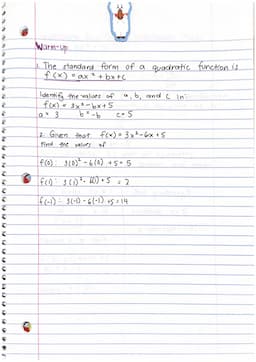 Warm-up
1. The standard form of a quadratic function is
f(x) = ax² + bx + c
Identify the values of a, b, and c in:
f(x) = 3x² - 6x + 5
a = 3 b = -6 c = 5
2. Given that f(x) = 3x² - 6x + 5
Find the values of
f(0): 3(0)² - 6(0) + 5 = 5
f(1): 3(1)² - 6(1) + 5 = 2
f(-1): 3(-1) - 6(-1) + 5 = 14